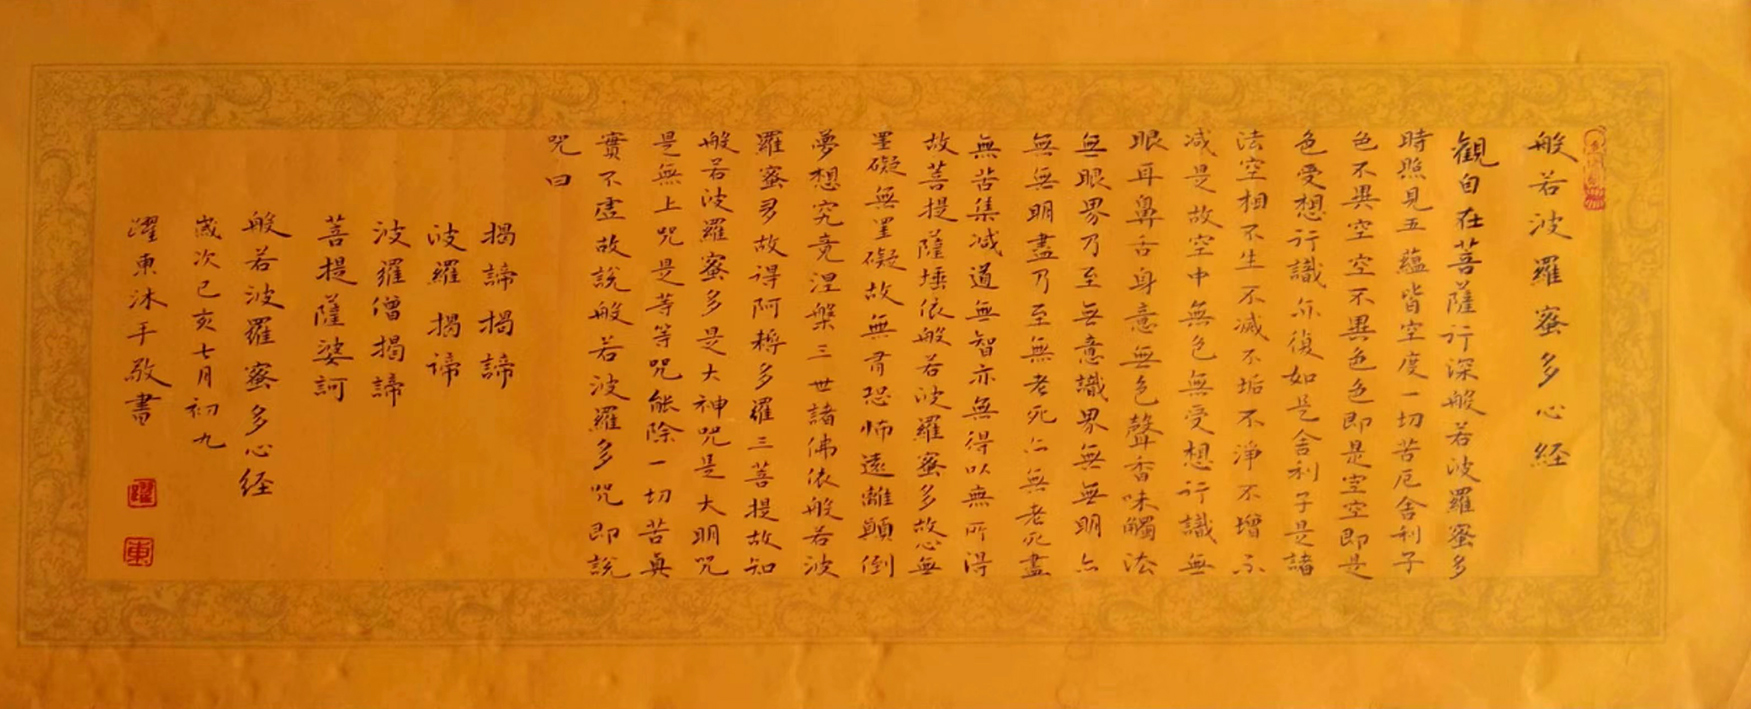 般若波羅蜜多心経
觀自在菩薩行深般若波羅蜜多
時照見五蘊皆空度一切苦厄舍利子
色不異空空不異色色即是空空即是
色受想行識亦復如是舍利子是諸
法空相不生不滅不垢不淨不增不
減是故空中無色無受想行識無
眼耳鼻舌身意無色聲香味觸法
無眼界乃至無意識界無無明亦
無無明盡乃至無老死亦無老死盡
無苦集滅道無智亦無得以無所得
故菩提薩埵依般若波羅蜜多故心無
罣礙無罣礙故無有恐怖遠離顛倒
夢想究竟涅槃三世諸佛依般若波
羅蜜多故得阿耨多羅三菩提故知
般若波羅蜜多是大神咒是大明咒
是無上咒是等等咒能除一切苦真
實不虛故說般若波羅多咒即說
咒曰
揭諦揭諦
波羅揭諦
波羅僧揭諦
菩提薩娑訶
般若波羅蜜多心経
歲次己亥七月初九
躍東沐手敬書
躍
東